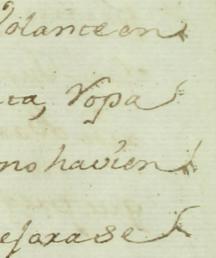 Volante en
ta, Ropa
no havien
esarase